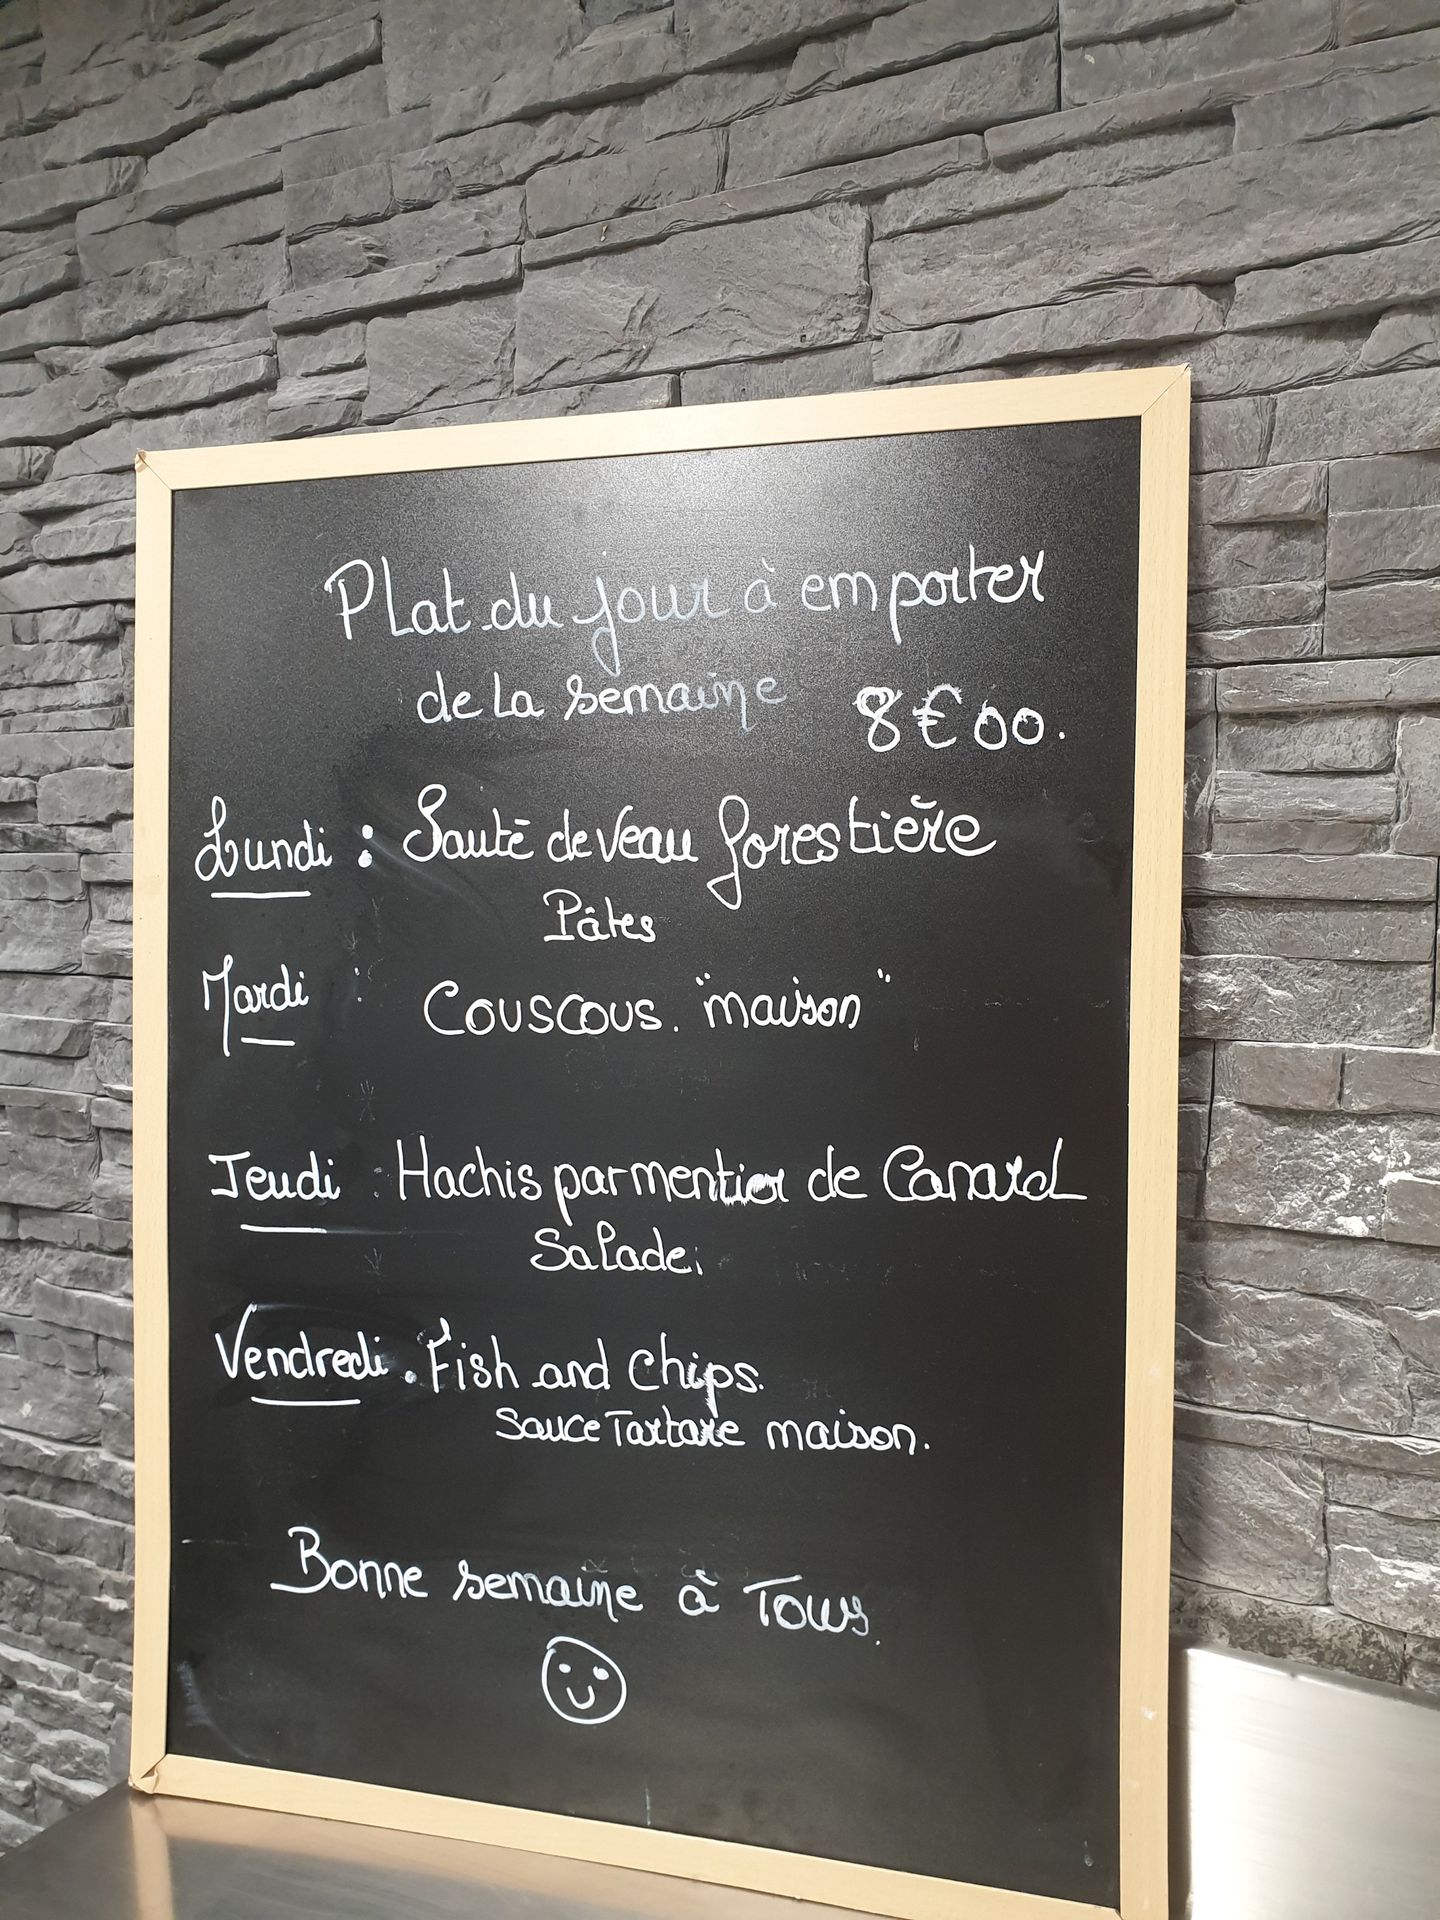 Plat du jour à emporter
de la semaine 8€00.
Lundi : Sauté de veau forestière
Pâtes
Mardi : Couscous. "maison"
Jeudi : Hachis parmentier de Canard
Salade.
Vendredi. Fish and chips.
Sauce Tartare maison.
Bonne semaine à Tous.